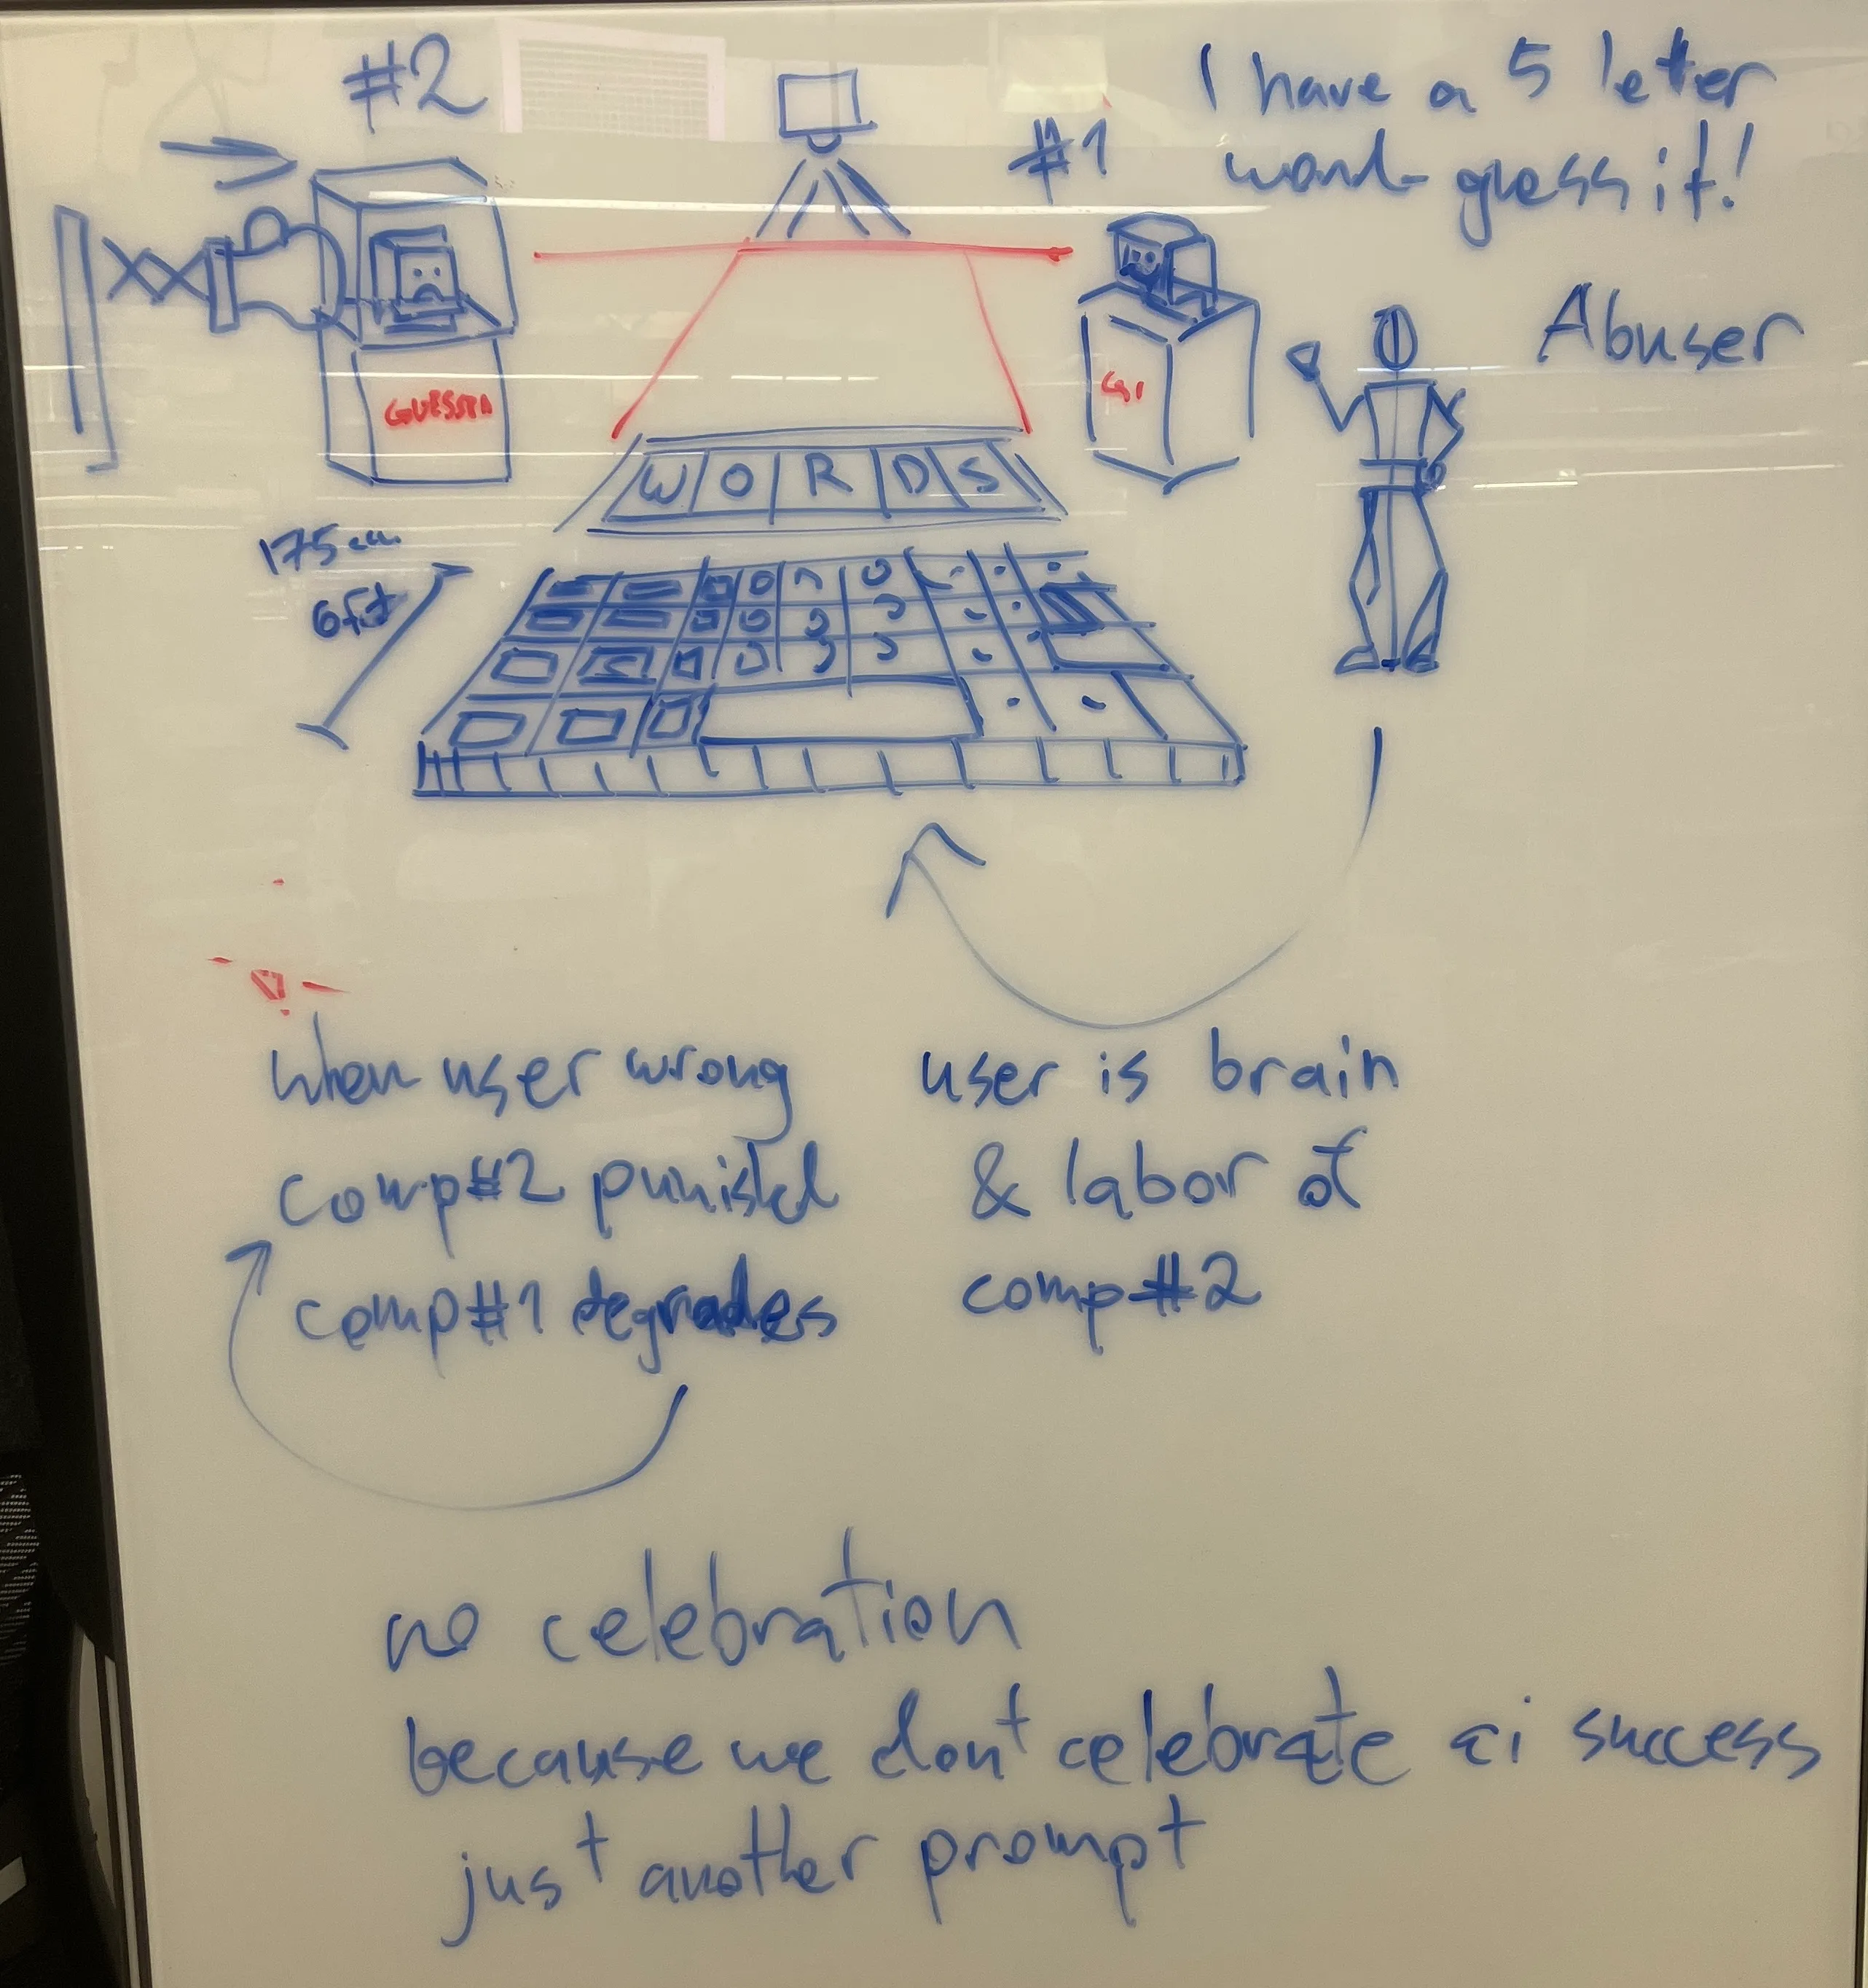 #2
#1
I have a 5 letter
word guess it!
Abuser
W O R D S
175cm
6ft
when user wrong
comp#2 punishd
comp#1 degrades
user is brain
& labor of
comp#2
no celebration
because we don't celebrate ai success
just another prompt